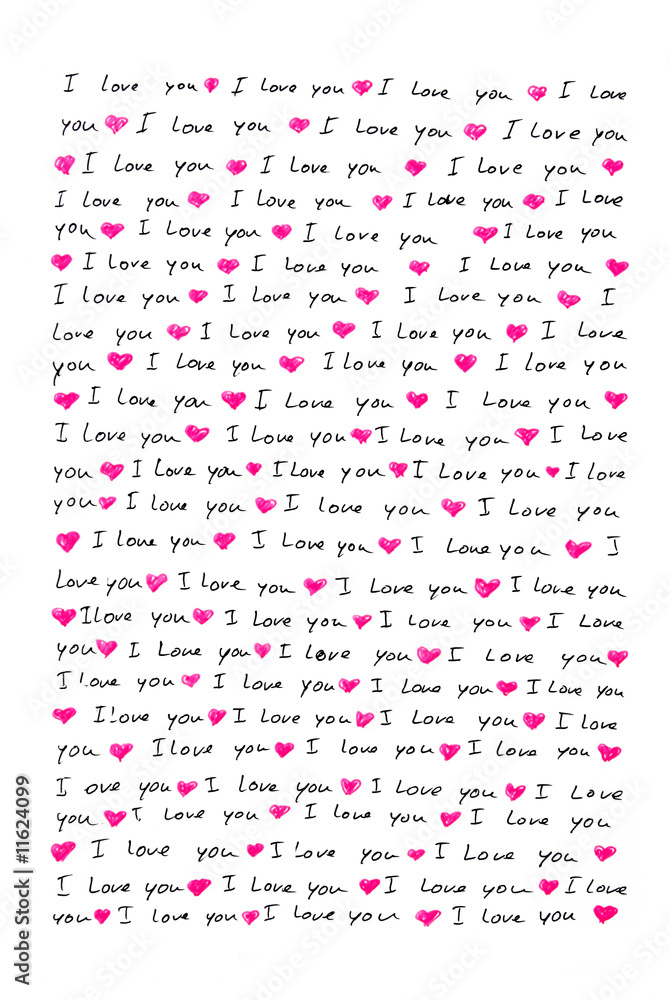 I love you ♥ I love you ♥ I love you ♥ I love
you ♥ I love you ♥ I love you ♥ I love you
♥ I love you ♥ I love you ♥ I love you ♥
I love you ♥ I love you ♥ I love you ♥ I love
you ♥ I love you ♥ I love you ♥ I love you
♥ I love you ♥ I love you ♥ I love you ♥
I love you ♥ I love you ♥ I love you ♥ I
love you ♥ I love you ♥ I love you ♥ I love
you ♥ I love you ♥ I love you ♥ I love you
♥ I love you ♥ I love you ♥ I love you ♥
I love you ♥ I love you ♥ I love you ♥ I love
you ♥ I love you ♥ I love you ♥ I love you ♥ I love
you ♥ I love you ♥ I love you ♥ I love you
♥ I love you ♥ I love you ♥ I love you ♥ I
love you ♥ I love you ♥ I love you ♥ I love you
♥ I love you ♥ I love you ♥ I love you ♥ I love
you ♥ I love you ♥ I love you ♥ I love you ♥
I love you ♥ I love you ♥ I love you ♥ I love you
♥ I love you ♥ I love you ♥ I love you ♥ I love
you ♥ I love you ♥ I love you ♥ I love you ♥
I ove you ♥ I love you ♥ I love you ♥ I love
you ♥ I love you ♥ I love you ♥ I love you
♥ I love you ♥ I love you ♥ I love you ♥
I love you ♥ I love you ♥ I love you ♥ I love
you ♥ I love you ♥ I love you ♥ I love you ♥
Adobe Stock | #11624099